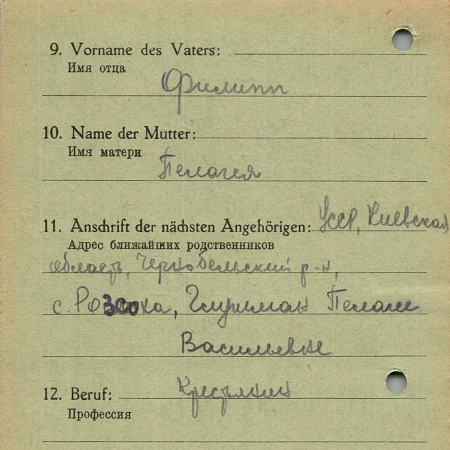 9. Vorname des Vaters:
Имя отца
Филипп
10. Name der Mutter:
Имя матери
Пелагея
11. Anschrift der nächsten Angehörigen: УССР, Киевская
Адрес ближайших родственников
область, Чернобельский р-н,
с. Пелагее
Васильевне
12. Beruf: Крестьянин
Профессия